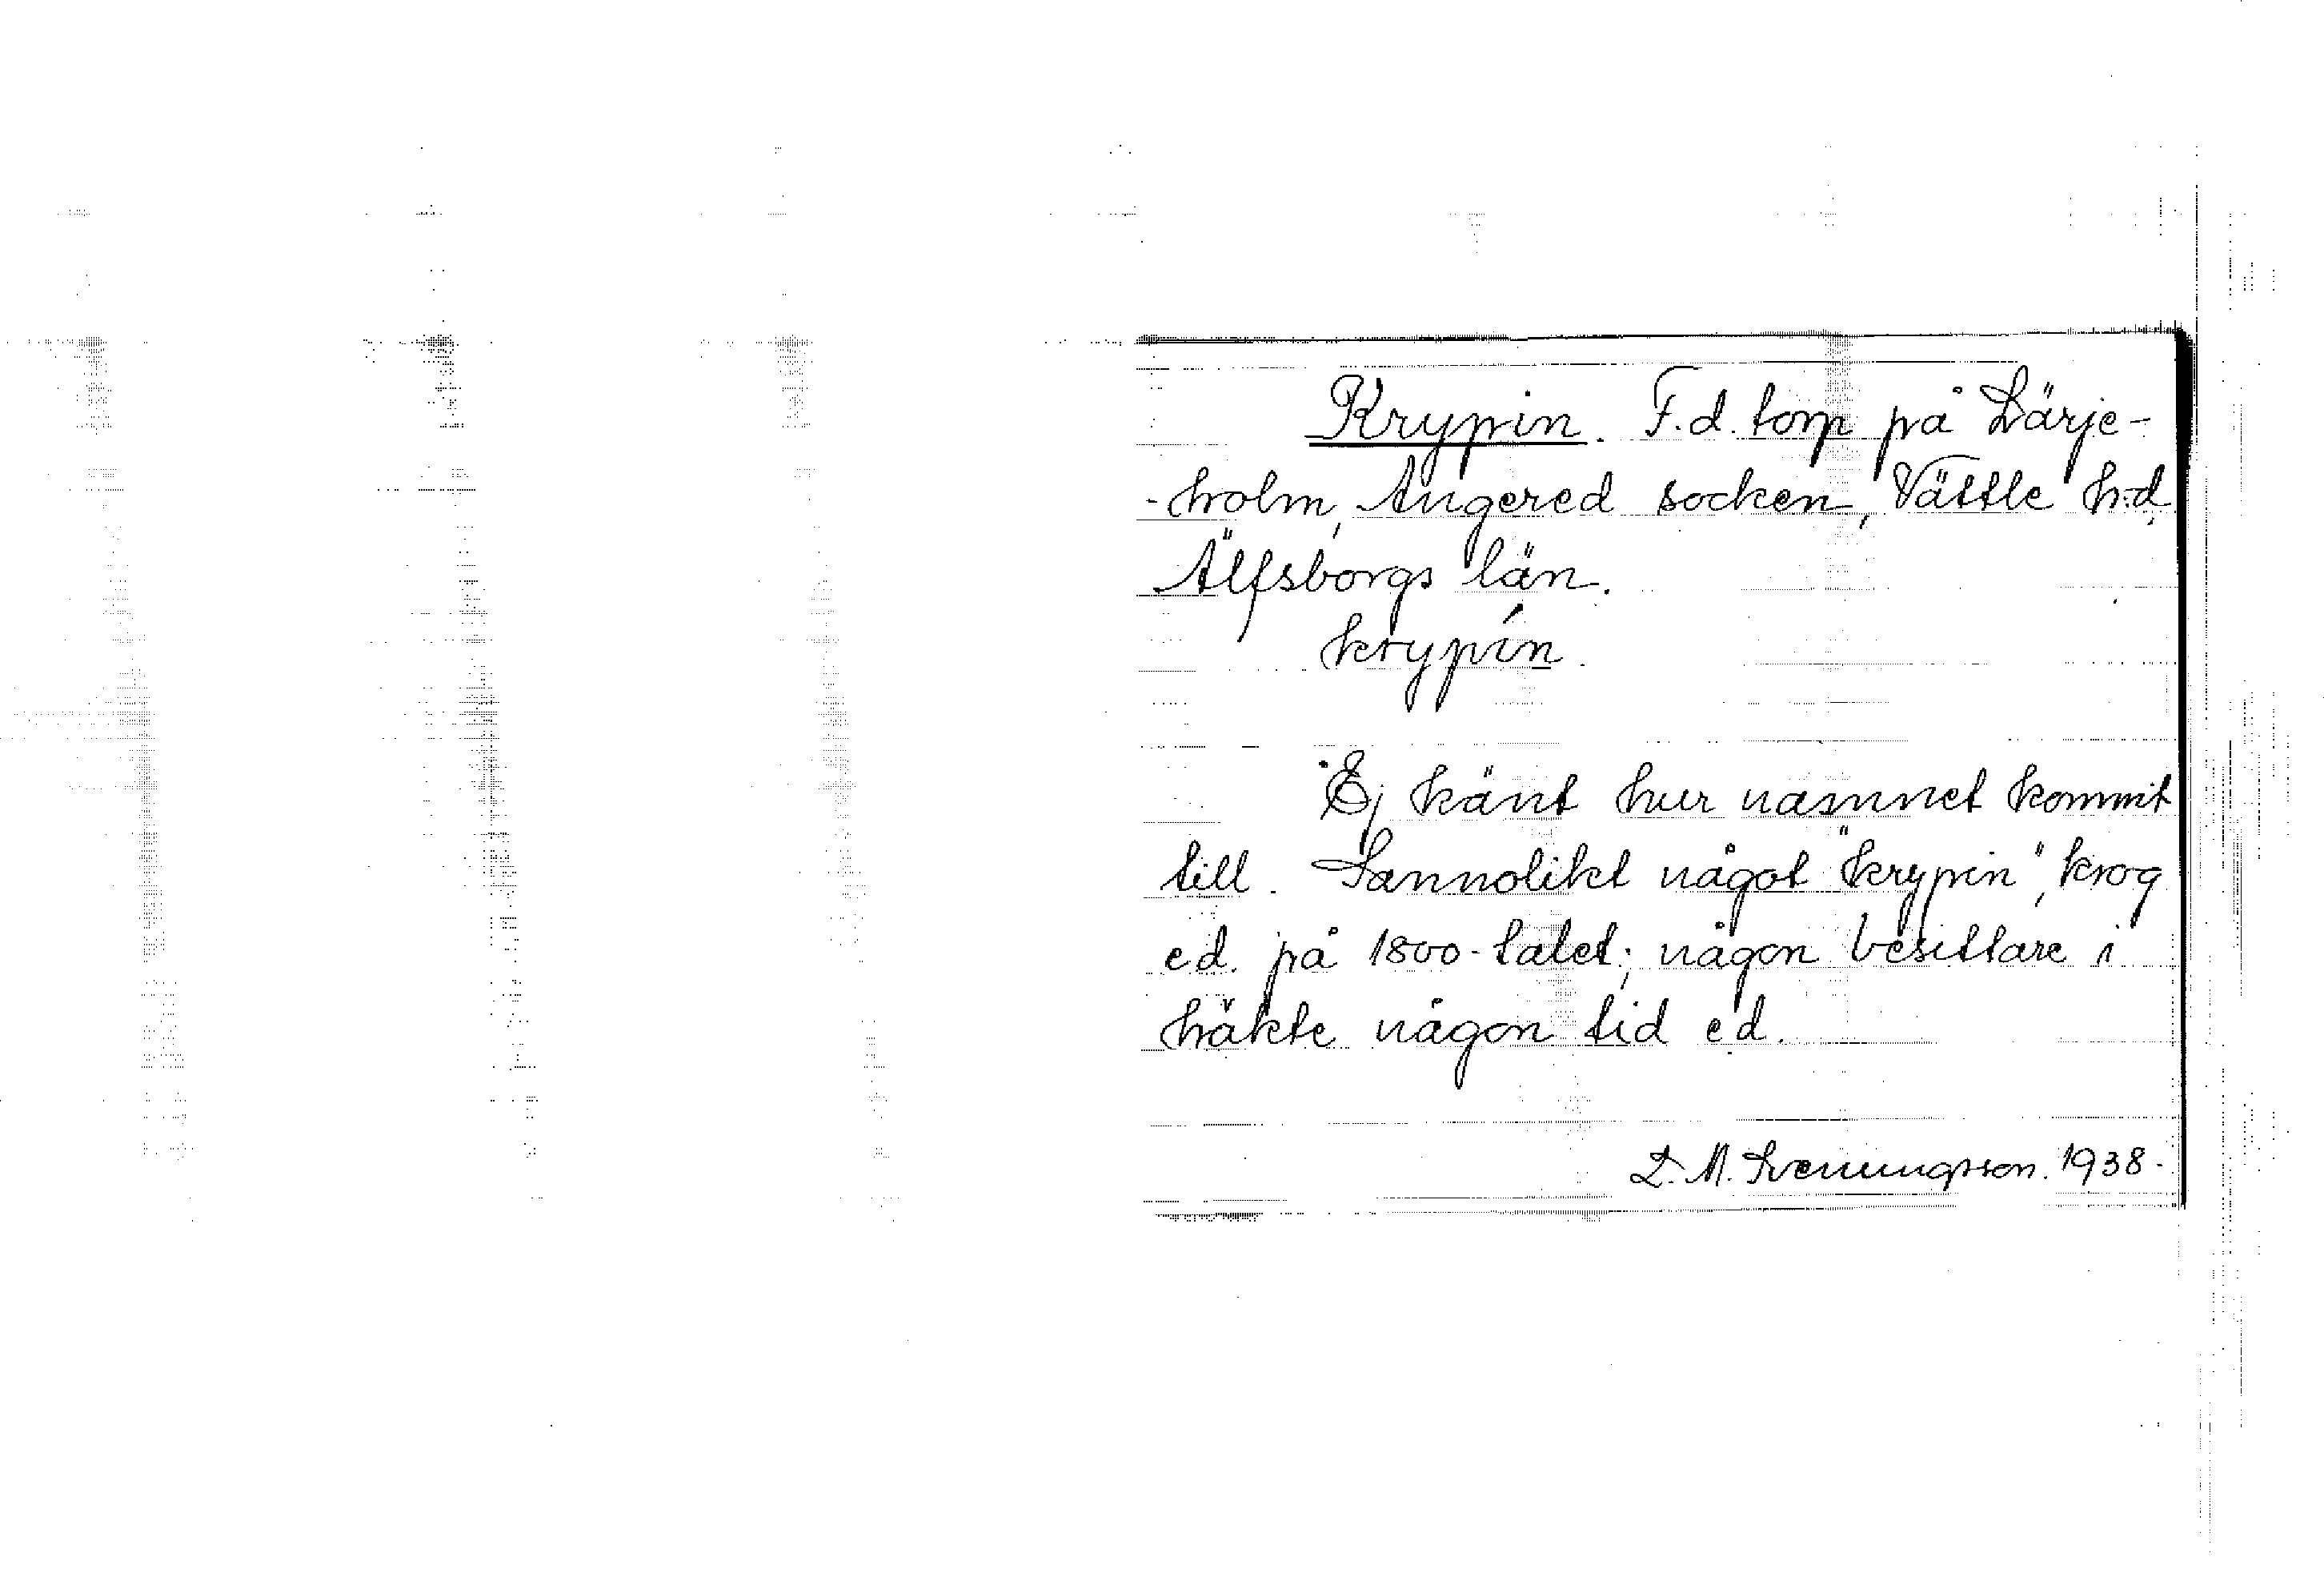 Krypin. F.d. torp på Lärje-
-holm, Angered socken, Vättle h-d,
Älfsborgs län.
krypín.
Ej känt hur namnet kommit
till. Sannolikt något "krypin", krog
e.d. på 1800-talet; någon besittare i
häkte någon tid e.d.
L. M. Svenungsson. 1938.